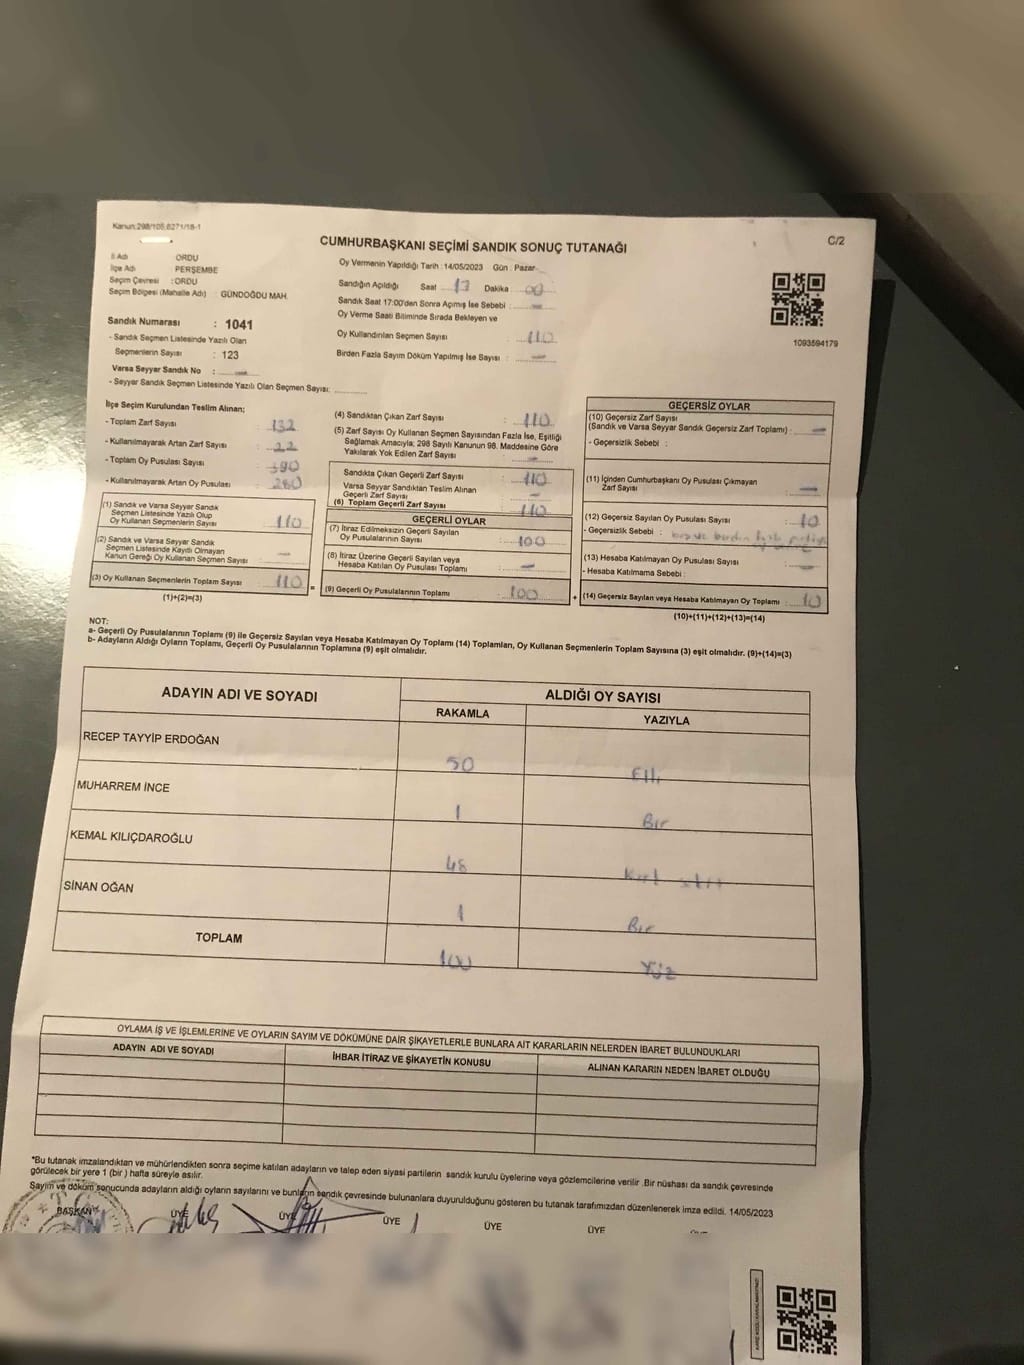 Kanun:298/105,6271/18-1
C/2
CUMHURBAŞKANI SEÇİMİ SANDIK SONUÇ TUTANAĞI
İl Adı ORDU
İlçe Adı PERŞEMBE
Seçim Çevresi : ORDU
Seçim Bölgesi (Mahalle Adı) : GÜNDOĞDU MAH.
Sandık Numarası : 1041
- Sandık Seçmen Listesinde Yazılı Olan
Seçmenlerin Sayısı : 123
Varsa Seyyar Sandık No : —
- Seyyar Sandık Seçmen Listesinde Yazılı Olan Seçmen Sayısı:
Oy Vermenin Yapıldığı Tarih : 14/05/2023 Gün : Pazar
Sandığın Açıldığı Saat Dakika 00
Sandık Saat 17:00'den Sonra Açımış İse Sebebi : —
Oy Verme Saati Bitiminde Sırada Bekleyen ve
Oy Kullandırılan Seçmen Sayısı : 110
Birden Fazla Sayım Döküm Yapılmış İse Sayısı : —
1093594179
İlçe Seçim Kurulundan Teslim Alınan;
- Toplam Zarf Sayısı : 132
- Kullanılmayarak Artan Zarf Sayısı : 22
- Toplam Oy Pusulası Sayısı : 390
- Kullanılmayarak Artan Oy Pusulası : 280
(1) Sandık ve Varsa Seyyar Sandık
Seçmen Listesinde Yazılı Olup
Oy Kullanan Seçmenlerin Sayısı : 110
(2) Sandık ve Varsa Seyyar Sandık
Seçmen Listesinde Kayıtlı Olmayan
Kanun Gereği Oy Kullanan Seçmen Sayısı : —
(3) Oy Kullanan Seçmenlerin Toplam Sayısı : 110
(1)+(2)=(3)
=
(4) Sandıktan Çıkan Zarf Sayısı : 110
(5) Zarf Sayısı Oy Kullanan Seçmen Sayısından Fazla İse, Eşitliği
Sağlamak Amacıyla; 298 Sayılı Kanunun 98. Maddesine Göre
Yakılarak Yok Edilen Zarf Sayısı : —
Sandıkta Çıkan Geçerli Zarf Sayısı : 110
Varsa Seyyar Sandıktan Teslim Alınan
Geçerli Zarf Sayısı : —
(6) Toplam Geçerli Zarf Sayısı : 110
GEÇERLİ OYLAR
(7) İtiraz Edilmeksizin Geçerli Sayılan
Oy Pusulalarının Sayısı : 100
(8) İtiraz Üzerine Geçerli Sayılan veya
Hesaba Katılan Oy Pusulası Toplamı : —
(9) Geçerli Oy Pusulalarının Toplamı : 100
+
GEÇERSİZ OYLAR
(10) Geçersiz Zarf Sayısı
(Sandık ve Varsa Seyyar Sandık Geçersiz Zarf Toplamı) : —
- Geçersizlik Sebebi :
(11) İçinden Cumhurbaşkanı Oy Pusulası Çıkmayan
Zarf Sayısı : —
(12) Geçersiz Sayılan Oy Pusulası Sayısı : 10
- Geçersizlik Sebebi :
(13) Hesaba Katılmayan Oy Pusulası Sayısı : —
- Hesaba Katılmama Sebebi :
(14) Geçersiz Sayılan veya Hesaba Katılmayan Oy Toplamı : 10
(10)+(11)+(12)+(13)=(14)
NOT:
a- Geçerli Oy Pusulalarının Toplamı (9) ile Geçersiz Sayılan veya Hesaba Katılmayan Oy Toplamı (14) Toplamları, Oy Kullanan Seçmenlerin Toplam Sayısına (3) eşit olmalıdır. (9)+(14)=(3)
b- Adayların Aldığı Oyların Toplamı, Geçerli Oy Pusulalarının Toplamına (9) eşit olmalıdır.
ADAYIN ADI VE SOYADI
ALDIĞI OY SAYISI
RAKAMLA YAZIYLA
RECEP TAYYİP ERDOĞAN 50 Elli
MUHARREM İNCE 1 Bir
KEMAL KILIÇDAROĞLU 48 Kırk sekiz
SİNAN OĞAN 1 Bir
TOPLAM 100 Yüz
OYLAMA İŞ VE İŞLEMLERİNE VE OYLARIN SAYIM VE DÖKÜMÜNE DAİR ŞİKAYETLERLE BUNLARA AİT KARARLARIN NELERDEN İBARET BULUNDUKLARI
ADAYIN ADI VE SOYADI İHBAR İTİRAZ VE ŞİKAYETİN KONUSU ALINAN KARARIN NEDEN İBARET OLDUĞU
*Bu tutanak imzalandıktan ve mühürlendikten sonra seçime katılan adayların ve talep eden siyasi partilerin sandık kurulu üyelerine veya gözlemcilerine verilir .Bir nüshası da sandık çevresinde
görülecek bir yere 1 (bir ) hafta süreyle asılır.
Sayım ve döküm sonucunda adayların aldığı oyların sayılarını ve bunların sandık çevresinde bulunanlara duyurulduğunu gösteren bu tutanak tarafımızdan düzenlenerek imza edildi. 14/05/2023
BAŞKAN ÜYE ÜYE ÜYE ÜYE ÜYE